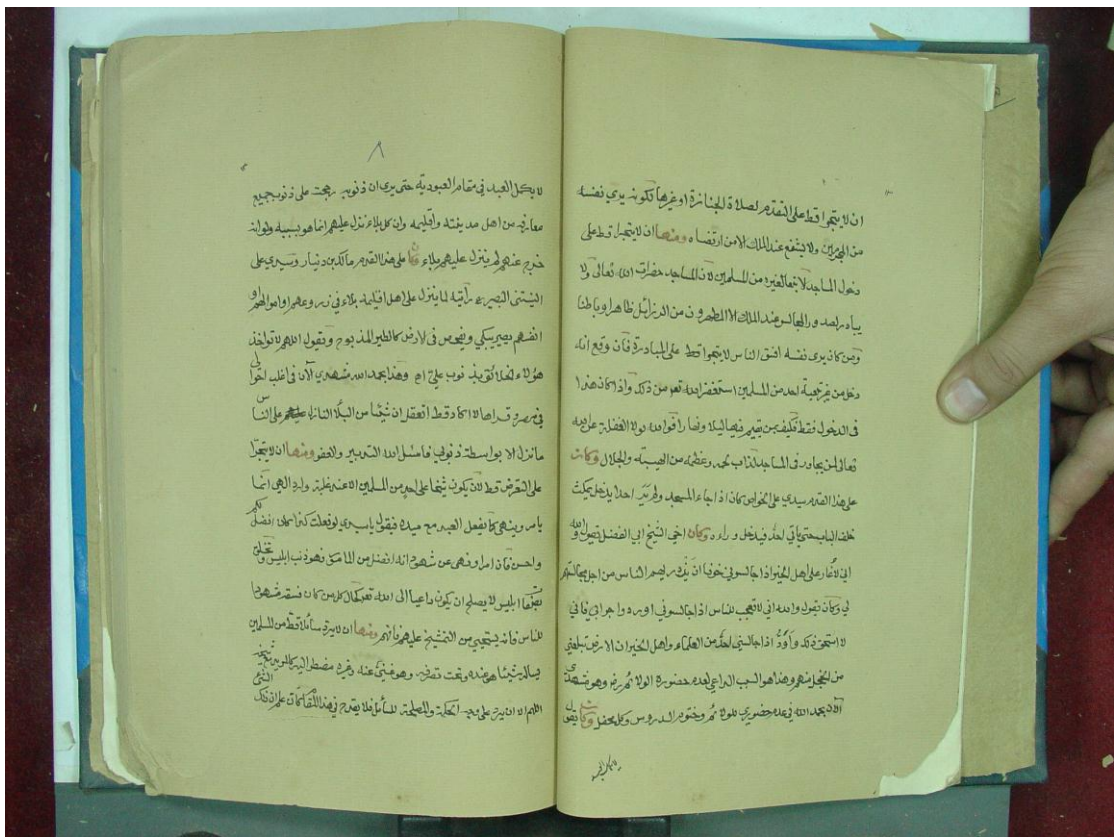 ان لا يتجرا قط على التقدم لصلاة الجنازة او غيرها لكونه يرى نفسه
من المجرمين ولا يشفع عند الملك الا من ارتضاه ومنها ان لا يتجرا قط على
دخول المساجد الا تبعا لغيره من المسلمين لان المساجد حضرات الله تعالى ولا
يبادر لصدور المجالس عند الملك الا المطهرون من الرزائل ظاهرا وباطنا
ومن كان يرى نفسه افسق الناس لا يتجرا قط على المبادرة فان وقع انه
دخل من غير تبعية احد من المسلمين استغفر الله تعو من ذلك واذا كان هذا
في الدخول فقط فكيف بمن يقيم فيها ليلا ونهارا فوالله لولا الغفلة عن الله
تعالى لمن يجاور في المساجد لذاب لحمه وعظمه من الهيبة والجلال وكان
على هذا القدم سيدي علي الخواص كان اذا جاء المسجد ولم ير احدا يدخل يمكث
خلف الباب حتى ياتي احد فيدخل وراءه وكان اخي الشيخ ابي الفضل يقول والله
اني لاغار على اهل الخير اذا جالسوني خوفا ان يزدريهم الناس من اجل مجالستهم
لي وكان يقول والله اني لا تعجب للناس اذا جالسوني اوردوا جرابي فاني
لا استحق ذلك واود اذا جالسني احد من العلماء واهل الخير ان الارض تبلعني
من الخجل منهم وهذا هو السبب الداعي لعدم حضوره الولائم رضه وهو مشهدي
الآن بحمد الله في عدم حضوري للولائم وختوم الدروس وكل محفل وكان يقول
لا يكمل العبد
٨
لا يكمل العبد في مقام العبودية حتى يرى ان ذنوبه رجحت على ذنوب جميع
معارفه من اهل مدينته واقليمه وان كل بلاء نزل عليهم انما هو بسببه ولو انه
خرج عنهم لم ينزل عليهم بلاء وكان على هذا القدم مالك بن دينار وسيدي علي
البصير رايته لما ينزل على اهل اقليمه بلاء في زروعهم او اموالهم او
انفسهم يصير يبكي ويفحص في الارض كالطير المذبوح ويقول اللهم لا تواخذ
هؤلاء لذنوب علي اه وهذا بحمد الله مشهدي الآن في اغلب احوالي
في مصر وقراها لا اكاد قط اتعقل ان شيئا من البلاء النازل على الناس
ما نزل الا بواسطة ذنوبي فاسئل الله التدبير والعفو ومنها ان لا يتجرا
على التعرض قط لان يكون شيخا على احد من المسلمين الا عند غلبة وارد الهي انما
يامر وينهى كما يفعل العبد مع سيده فيقول يا سيدي لو فعلت كذا كان افضل لكم
واحسن فان امر او نهى عن شهود انه افضل من المامور فهو ذنب ابليس ومن تخلق
بصفات ابليس لا يصلح ان يكون داعيا الى الله تعو بل كل من كان
للناس فانه يستحيي من التمشيخ عليهم فافهم ومنها ان لا يرد سائلا قط من المسلمين
يساله شيئا هو عنده وتحت تصرفه وهو غني عنه وغيره مضطر اليه
اللهم الا ان يرد على وجه الحكمة والمصلحة للسائل فلا يقدح في هذا المقام على ان ذلك